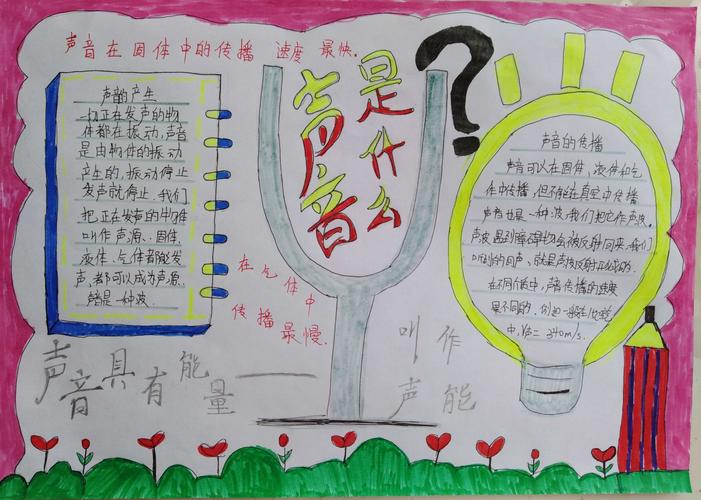 声音在固体中的传播 速度 最快.
声音的产生
一切正在发声的物
体都在振动,声音
是由物体的振动
产生的,振动停止
发声就停止.我们
把正在发声的物体
叫作声源、固体、
液体、气体都能发
声,都可以成为声源,
声音是一种波.
声音
是什么
?
在气体中
传播
最慢.
声音的传播
声音可以在固体,液体和气
体中传播,但不能在真空中传播
声音也是一种波,我们把它作声波.
声波遇到障碍物会被反射回来,我们
听到的回声,就是声波反射形成的.
在不同介质中,声音传播的速度
是不同的,例如一般在空气
中,V声= 340m/s.
声音具有能量——
叫作
声能